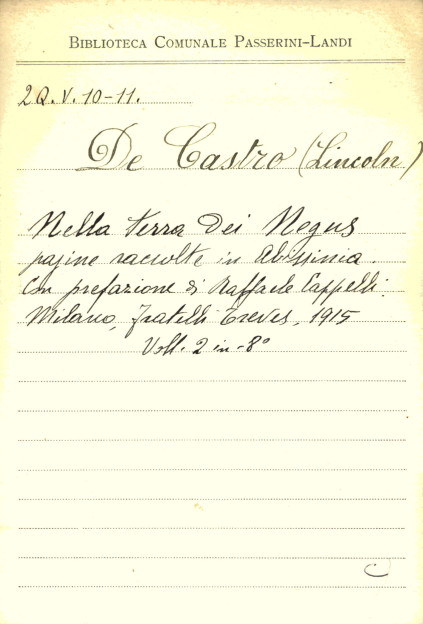 BIBLIOTECA COMUNALE PASSERINI-LANDI
2Q.V.10-11.
De Castro (Lincoln)
Nella terra dei Negus
pagine raccolte in Abissinia.
Con prefazione di Raffaele Cappelli.
Milano, Fratelli Treves, 1915
Voll. 2 in-8°